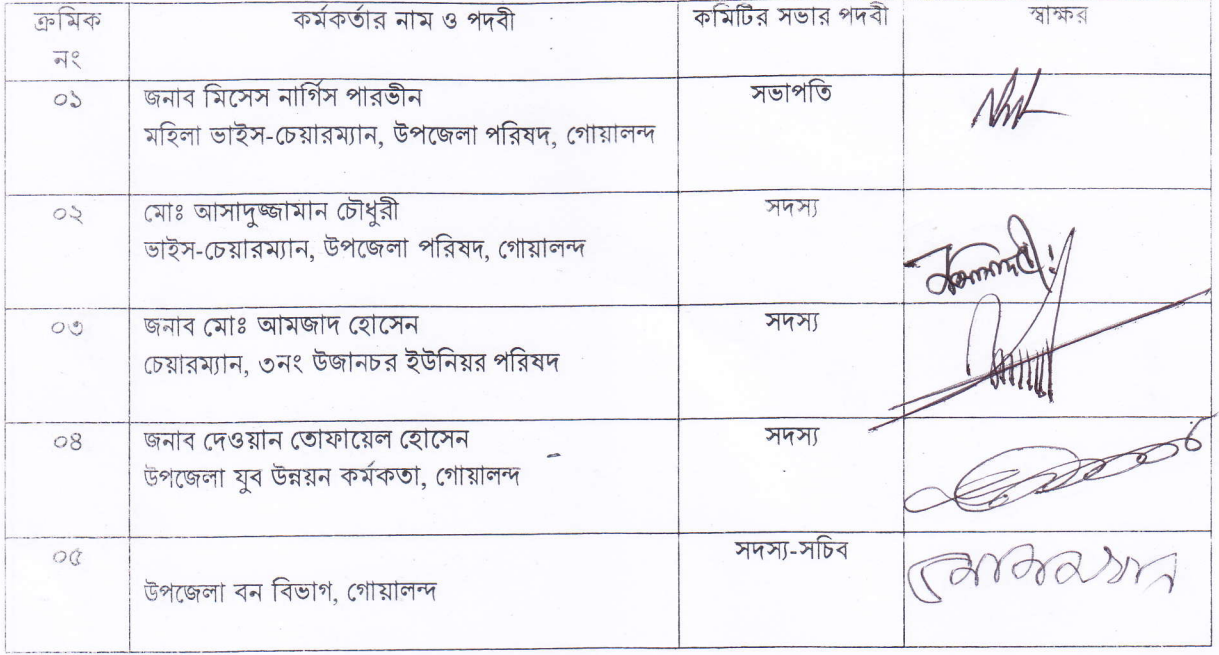 ক্রমিক নং কর্মকর্তার নাম ও পদবী কমিটির সভার পদবী স্বাক্ষর
০১ জনাব মিসেস নার্গিস পারভীন সভাপতি
মহিলা ভাইস-চেয়ারম্যান, উপজেলা পরিষদ, গোয়ালন্দ
০২ মোঃ আসাদুজ্জামান চৌধুরী সদস্য
ভাইস-চেয়ারম্যান, উপজেলা পরিষদ, গোয়ালন্দ
০৩ জনাব মোঃ আমজাদ হোসেন সদস্য
চেয়ারম্যান, ৩নং উজানচর ইউনিয়র পরিষদ
০৪ জনাব দেওয়ান তোফায়েল হোসেন সদস্য
উপজেলা যুব উন্নয়ন কর্মকতা, গোয়ালন্দ
০৫ সদস্য-সচিব
উপজেলা বন বিভাগ, গোয়ালন্দ